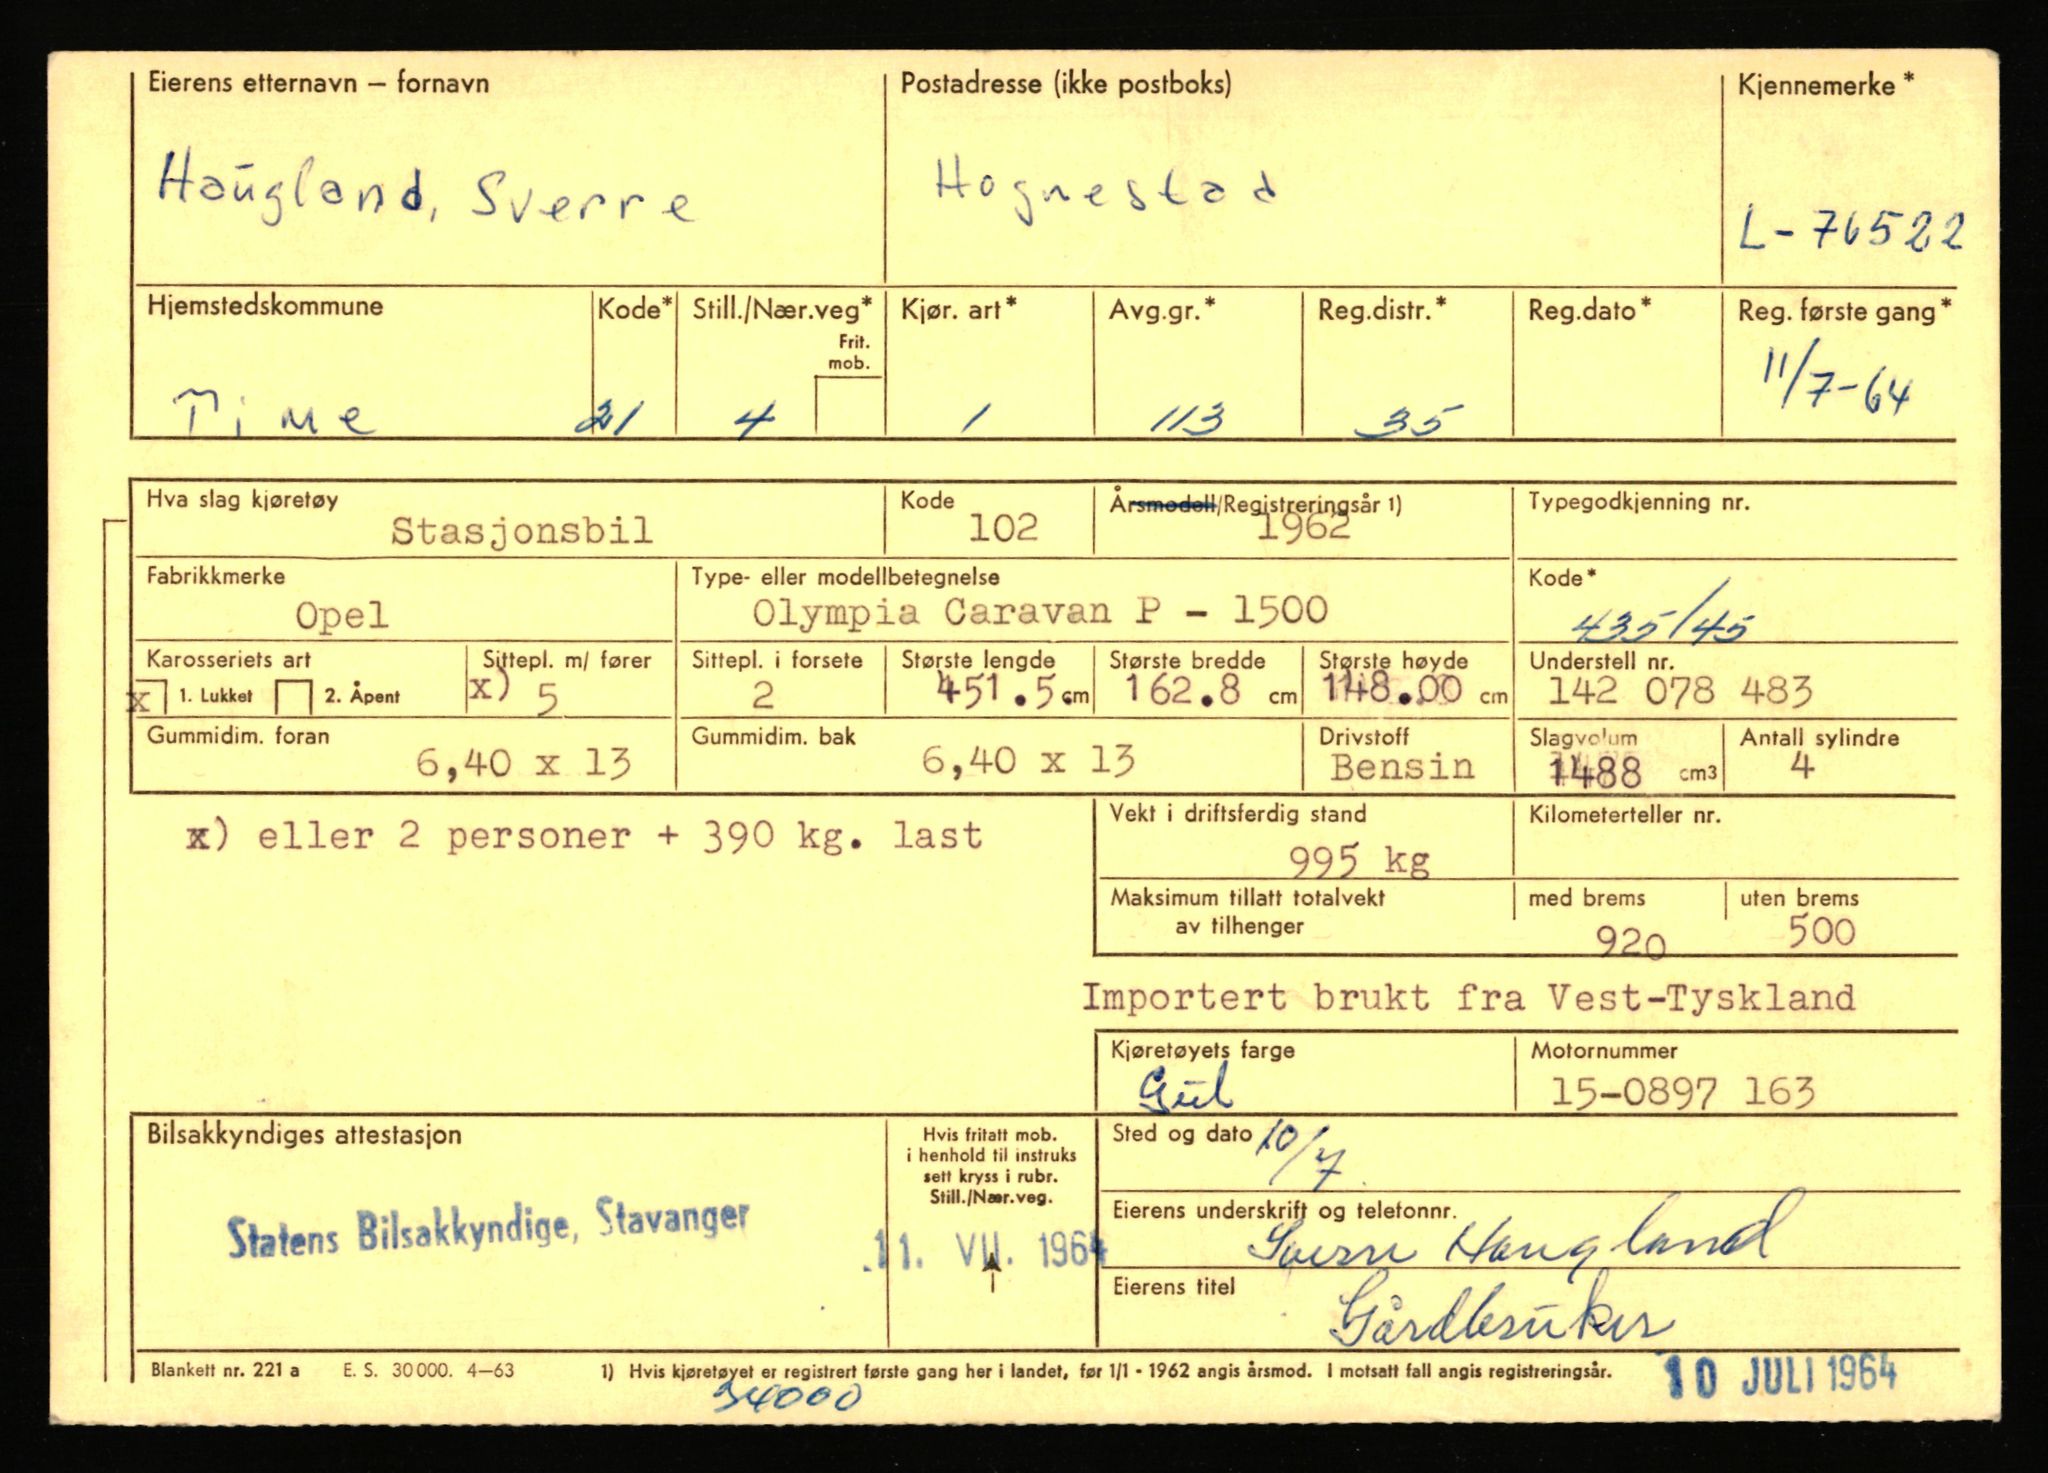 Eierens etternavn – fornavn
Postadresse (ikke postboks)
Kjennemerke*
Haugland, Sverre
Hognestad
L-76522
Hjemstedskommune
Kode*
Still./Nær.veg*
Frit. mob.
Kjør. art*
Avg.gr.*
Reg.distr.*
Reg.dato*
Reg. første gang*
Time
21
4
1
113
35
11/7-64
Hva slag kjøretøy
Stasjonsbil
Kode
102
Årsmodell/Registreringsår 1)
1962
Typegodkjenning nr.
Fabrikkmerke
Opel
Type- eller modellbetegnelse
Olympia Caravan P - 1500
Kode*
435/45
Karosseriets art
x 1. Lukket 2. Åpent
Sittepl. m/ fører
x) 5
Sittepl. i forsete
2
Største lengde
451.5 cm
Største bredde
162.8 cm
Største høyde
148.00 cm
Understell nr.
142 078 483
Gummidim. foran
6,40 x 13
Gummidim. bak
6,40 x 13
Drivstoff
Bensin
Slagvolum
1488 cm3
Antall sylindre
4
x) eller 2 personer + 390 kg. last
Vekt i driftsferdig stand
995 kg
Kilometerteller nr.
Maksimum tillatt totalvekt
av tilhenger
med brems
920
uten brems
500
Importert brukt fra Vest-Tyskland
Kjøretøyets farge
Gul
Motornummer
15-0897 163
Bilsakkyndiges attestasjon
Statens Bilsakkyndige, Stavanger
Hvis fritatt mob.
i henhold til instruks
sett kryss i rubr.
Still./Nær.veg.
11. VII. 1964
Sted og dato 10/7
Eierens underskrift og telefonnr.
Sverre Haugland
Eierens titel
Gårdbruker
Blankett nr. 221 a E. S. 30 000. 4–63
1) Hvis kjøretøyet er registrert første gang her i landet, før 1/1 - 1962 angis årsmod. I motsatt fall angis registreringsår.
34000
10 JULI 1964